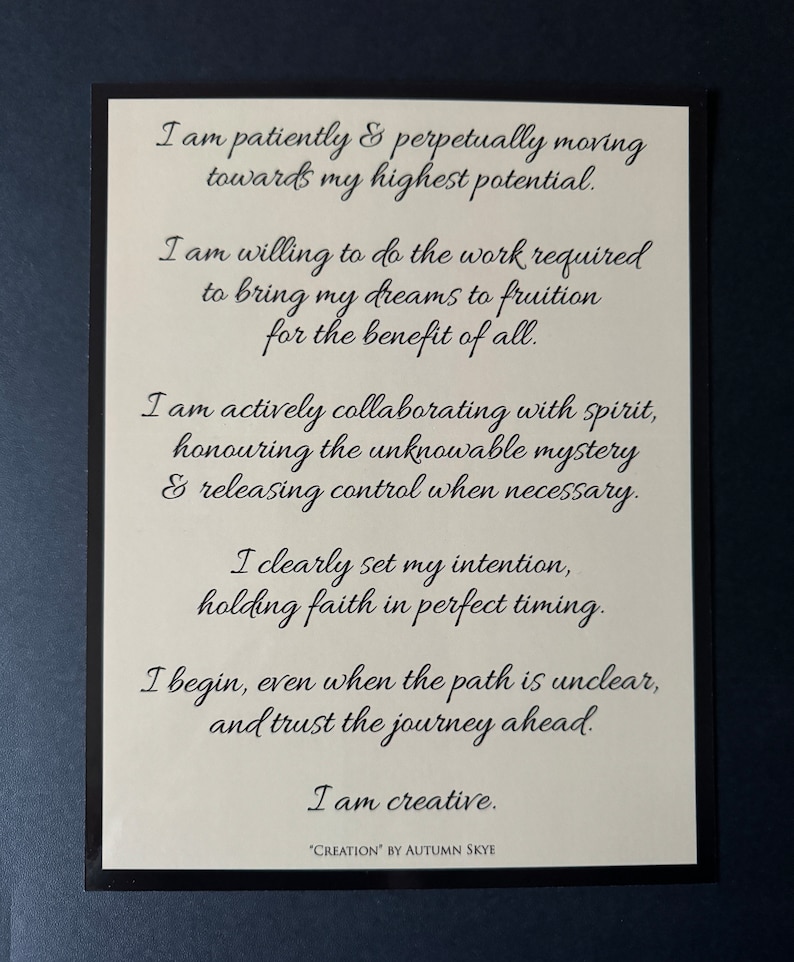 I am patiently & perpetually moving
towards my highest potential.
I am willing to do the work required
to bring my dreams to fruition
for the benefit of all.
I am actively collaborating with spirit,
honouring the unknowable mystery
& releasing control when necessary.
I clearly set my intention,
holding faith in perfect timing.
I begin, even when the path is unclear,
and trust the journey ahead.
I am creative.
"Creation" by Autumn Skye